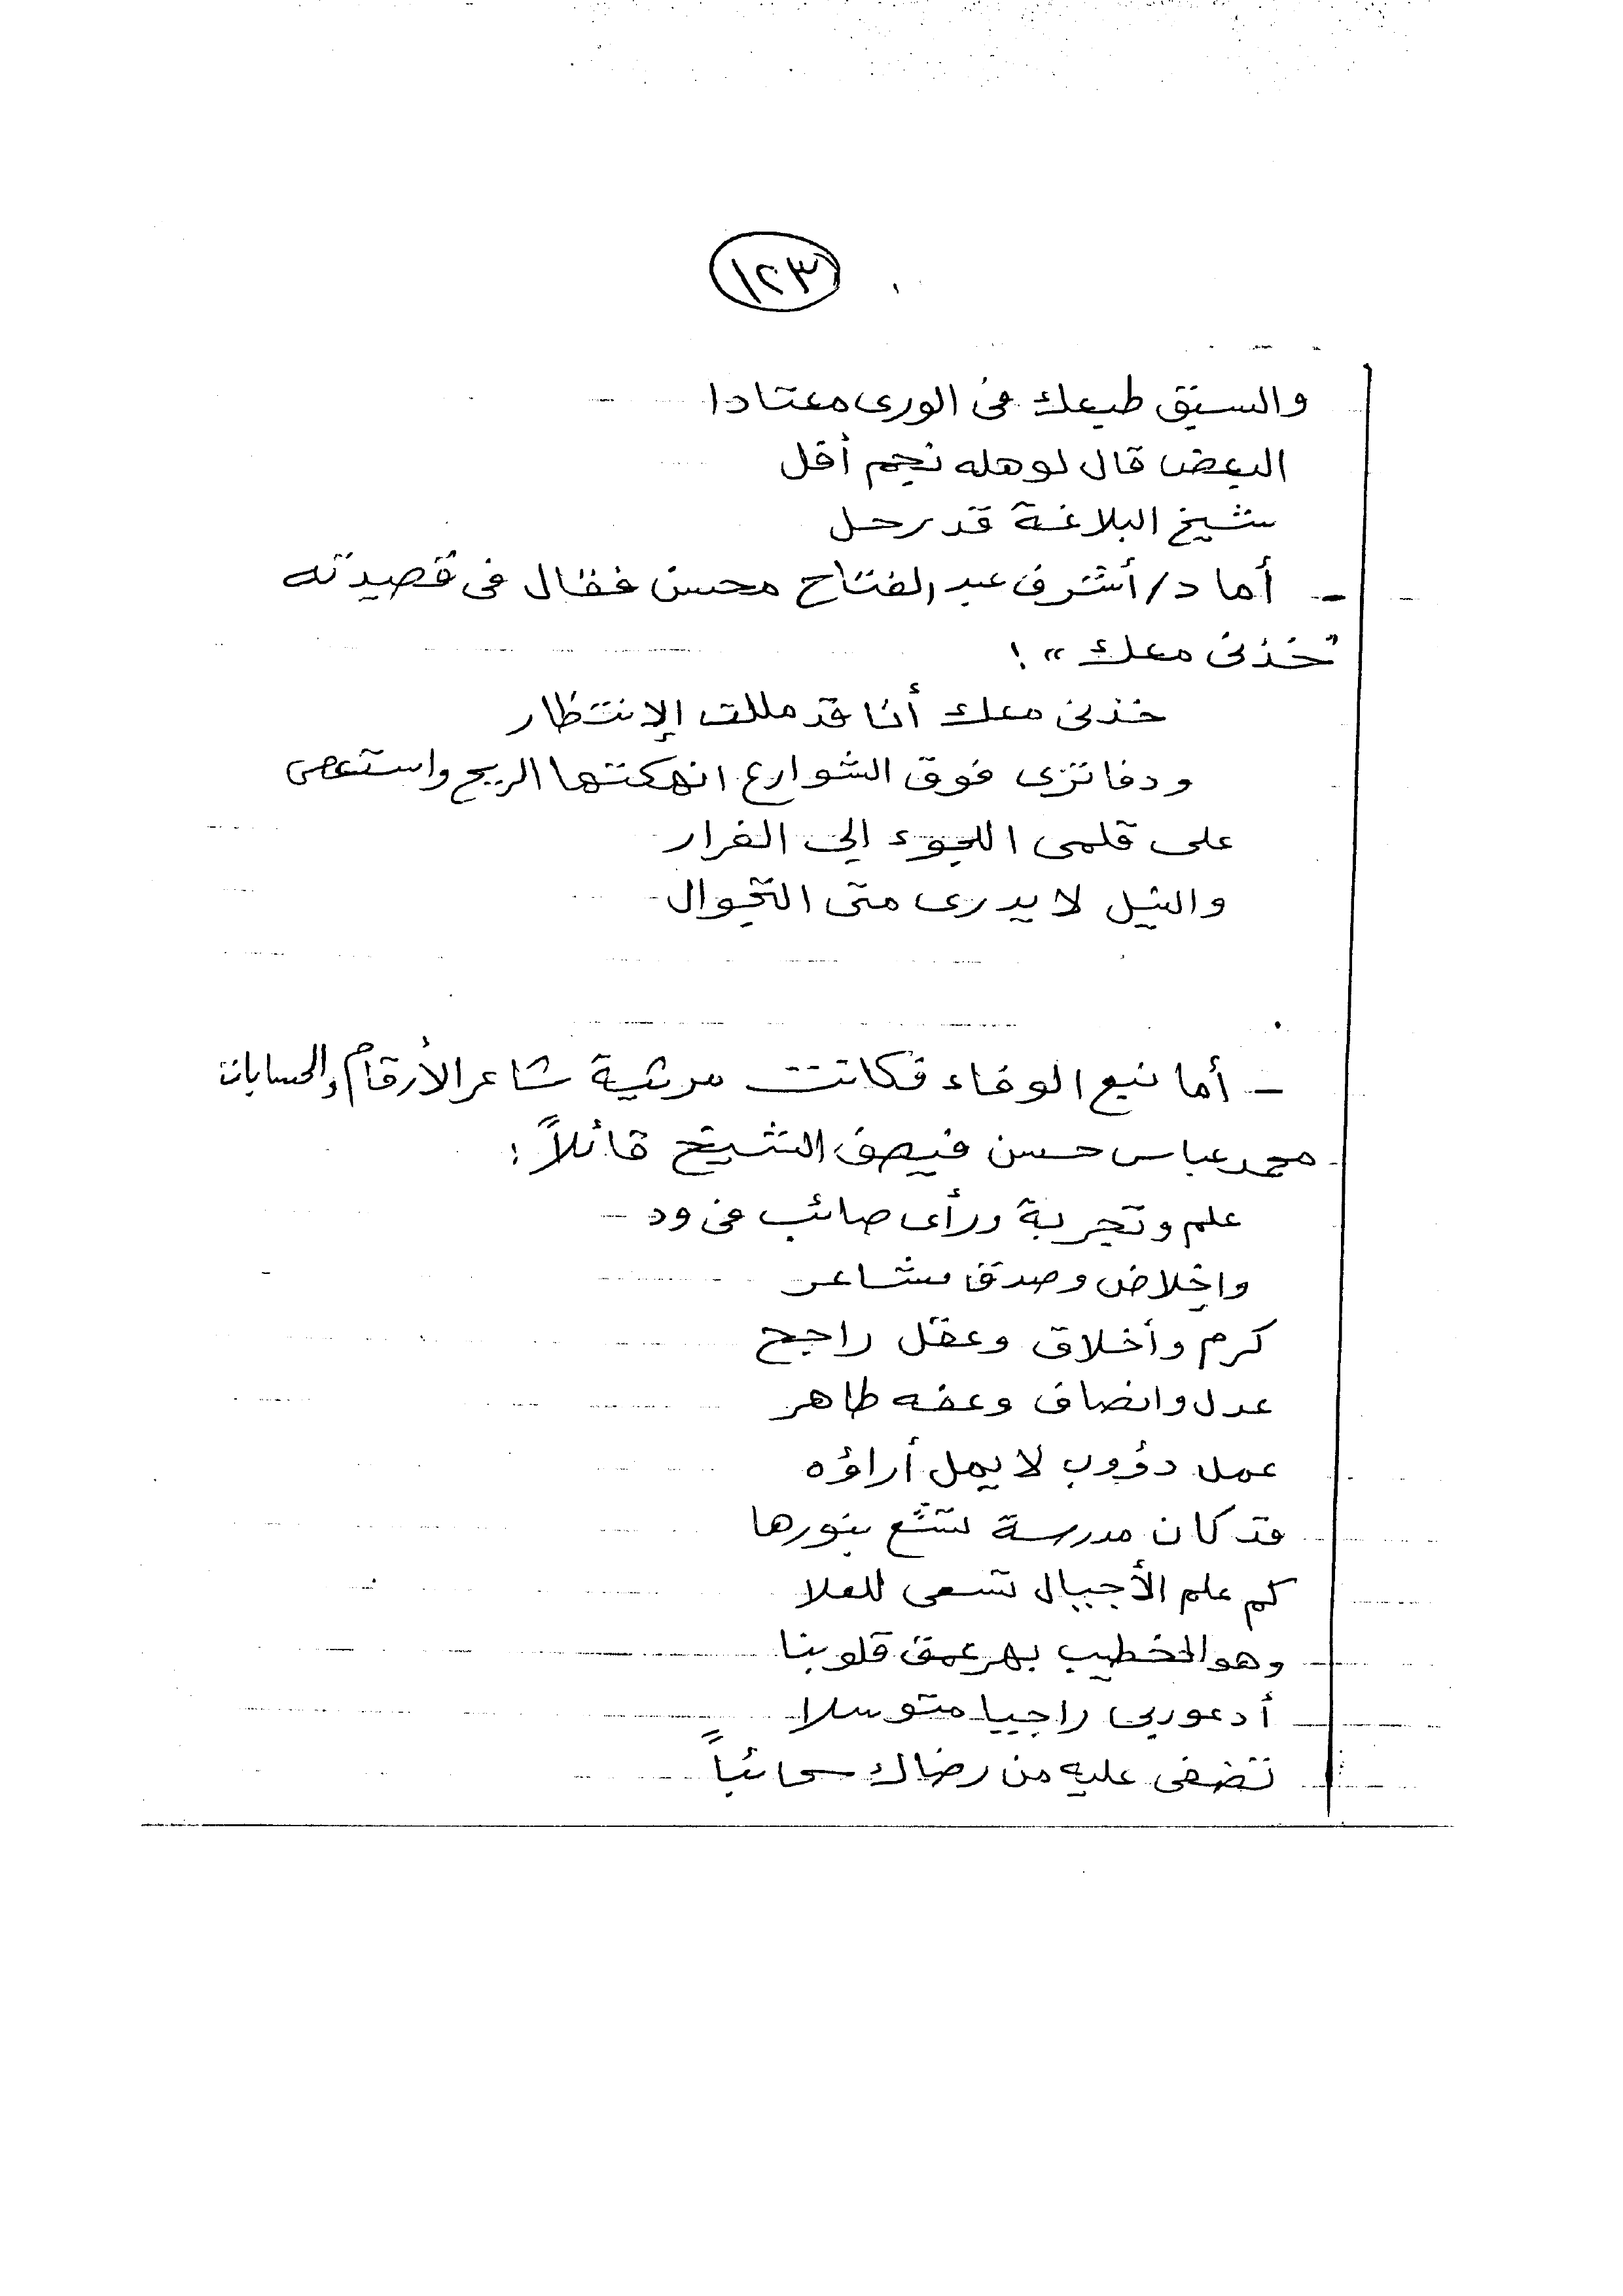 ١٢٣
والسبق طبعك فى الورى معتادا
البعض قال لوهله نجم أفل
شيخ البلاغة قد رحل
- أما د/أشرف عبد الفتاح محسن فقال فى قصيدته
"خذنى معك" :
خذنى معك أنا قد مللت الإنتظار
ودفاترى فوق الشوارع انهكتها الريح واستعصى
على قلمى اللجوء إلى الفرار
والنيل لا يدرى متى التجوال
- أما نبع الوفاء فكانت مرثية شاعر الأرقام والحسابات
محمد عباس حسن فيصف الشيخ قائلاً :
علم وتجربة ورأى صائب فى ود
وإخلاص وصدق مشاعر
كرم وأخلاق وعقل راجح
عدل وانصاف وعفه طاهر
عمل دؤوب لا يمل أراؤه
قد كان مدرسة تشع بنورها
كم علم الأجيال تسعى للعلا
وهو الخطيب يهز عمق قلوبنا
أدعو ربى راجيا متوسلا
تضفى عليه من رضاك سحائباً